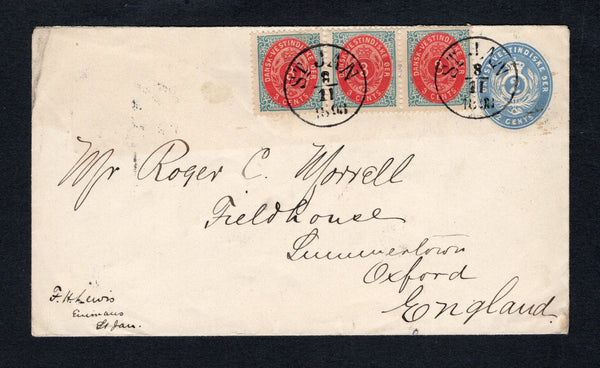 DANSK-VESTINDIEN
3 CENTS
DANSK-VESTINDIEN
CENTS
DANSK-VESTINDIEN
3 CENTS
VESTINDISKE ØER
CENTS
ST. JAN
8
11
ST. JAN
8
11
Mr Roger C. Morrell
Fieldhouse
Summertown
Oxford
England.
F. H. Lewis
Emmaus
St Jan.